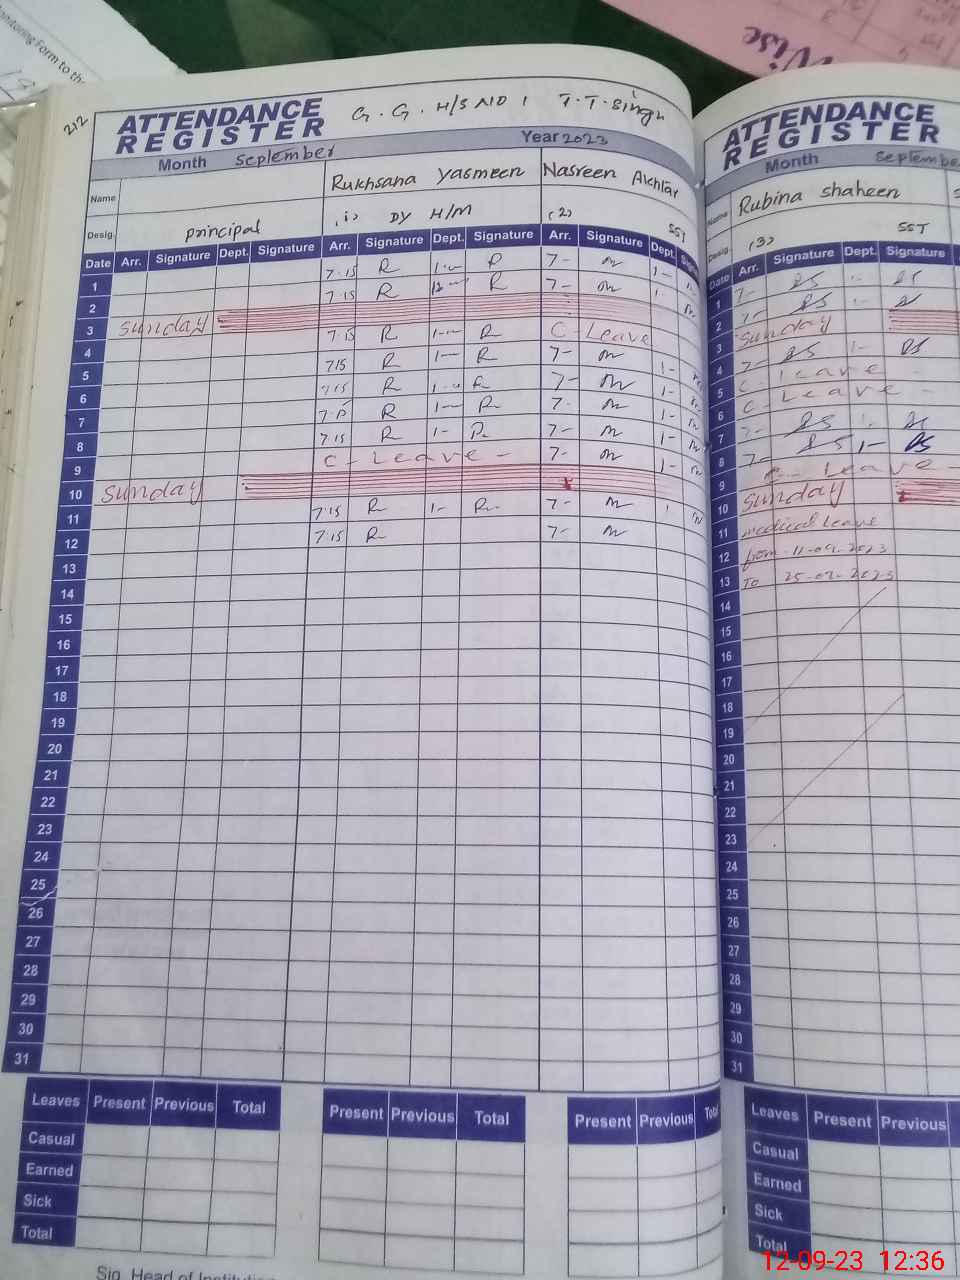 nitoring Form to the
Wise
212
ATTENDANCE REGISTER
G. G. H/S NO 1 T.T. Singh
Month September Year 2023
Name Rukhsana Yasmeen Nasreen Akhtar
Desig. principal (1) DY H/M (2) SST
Date Arr. Signature Dept. Signature Arr. Signature Dept. Signature Arr. Signature Dept.
1 7-15 R 1-- R 7- 1-
2 7-15 R R 7- 1-
3 Sunday
4 7-15 R 1-- R C-Leave
5 7-15 R 1-- R 7- 1-
6 7-15 R R 7- 1-
7 R 1-- R 7- 1-
8 7-15 R 1- R 7- 1-
9 C-Leave- 7- 1-
10 Sunday
11 7-15 R 1- R 7-
12 7-15 R 7-
13
14
15
16
17
18
19
20
21
22
23
24
25
26
27
28
29
30
31
Leaves Present Previous Total Present Previous Total Present Previous
Casual
Earned
Sick
Total
Sig. Head of
ATTENDANCE REGISTER
Month September
Name Rubina Shaheen
Desig. (3) SST
Date Arr. Signature Dept. Signature
1 7- RS RS
2 7- RS 1-
3 Sunday
4 7- RS 1- RS
5 C-Leave -
6 C-Leave -
7 7- RS RS
8 7- RS 1- RS
9 Leave -
10 Sunday
11 medical Leave
12 from 11-09-2023
13 To 25-09-2023
14
15
16
17
18
19
20
21
22
23
24
25
26
27
28
29
30
31
Leaves Present Previous
Casual
Earned
Sick
Total
12-09-23 12:36